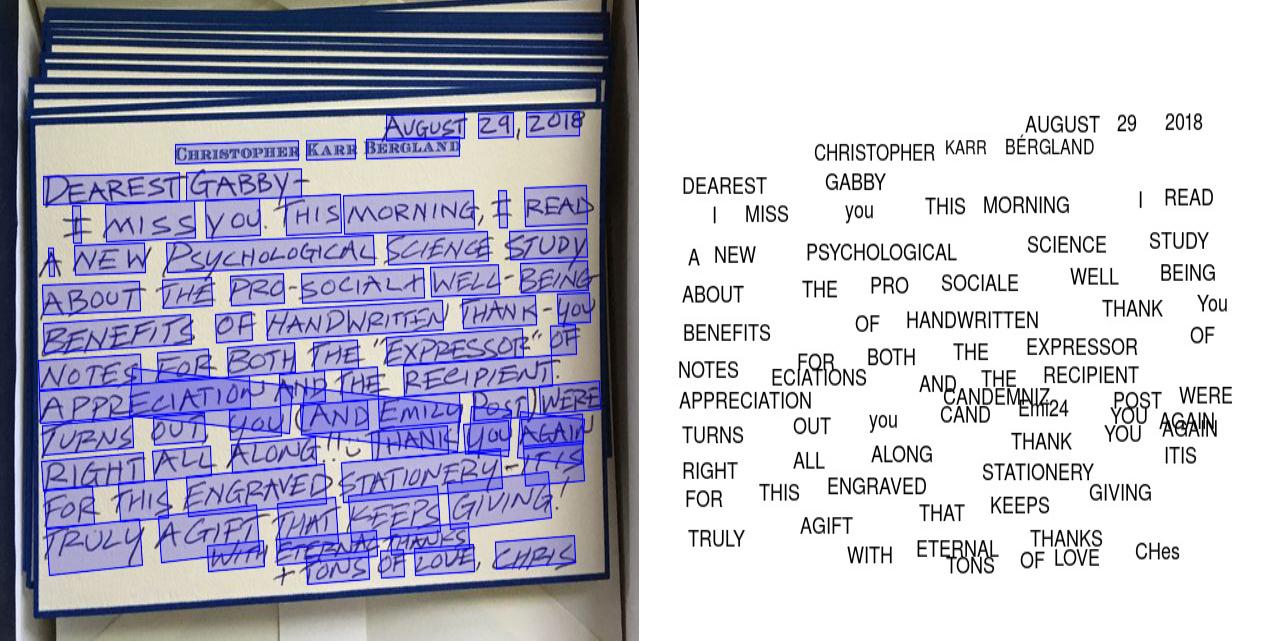 AUGUST 29, 2018
CHRISTOPHER KARR BERGLAND
DEAREST GABBY-
I MISS YOU. THIS MORNING, I READ
A NEW PSYCHOLOGICAL SCIENCE STUDY
ABOUT THE PRO-SOCIAL + WELL-BEING
BENEFITS OF HANDWRITTEN THANK-YOU
NOTES FOR BOTH THE "EXPRESSOR" OF
APPRECIATION AND THE RECIPIENT.
TURNS OUT, YOU (AND EMILY POST) WERE
RIGHT ALL ALONG!! THANK YOU AGAIN
FOR THIS ENGRAVED STATIONERY-IT IS
TRULY A GIFT THAT KEEPS GIVING!
WITH ETERNAL THANKS
+ TONS OF LOVE, CHRIS
AUGUST 29 2018
CHRISTOPHER KARR BÉRGLAND
DEAREST GABBY
I MISS you THIS MORNING I READ
A NEW PSYCHOLOGICAL SCIENCE STUDY
ABOUT THE PRO SOCIALE WELL BEING
BENEFITS OF HANDWRITTEN THANK You
NOTES FOR BOTH THE EXPRESSOR OF
APPRECIATION ECIATIONS AND THE RECIPIENT
CANDEMNIZ
TURNS OUT you CAND Emi24 POST WERE
RIGHT ALL ALONG THANK YOU AGAIN
YOU AGAIN
FOR THIS ENGRAVED STATIONERY ITIS
TRULY AGIFT THAT KEEPS GIVING
WITH ETERNAL THANKS
TONS OF LOVE CHes